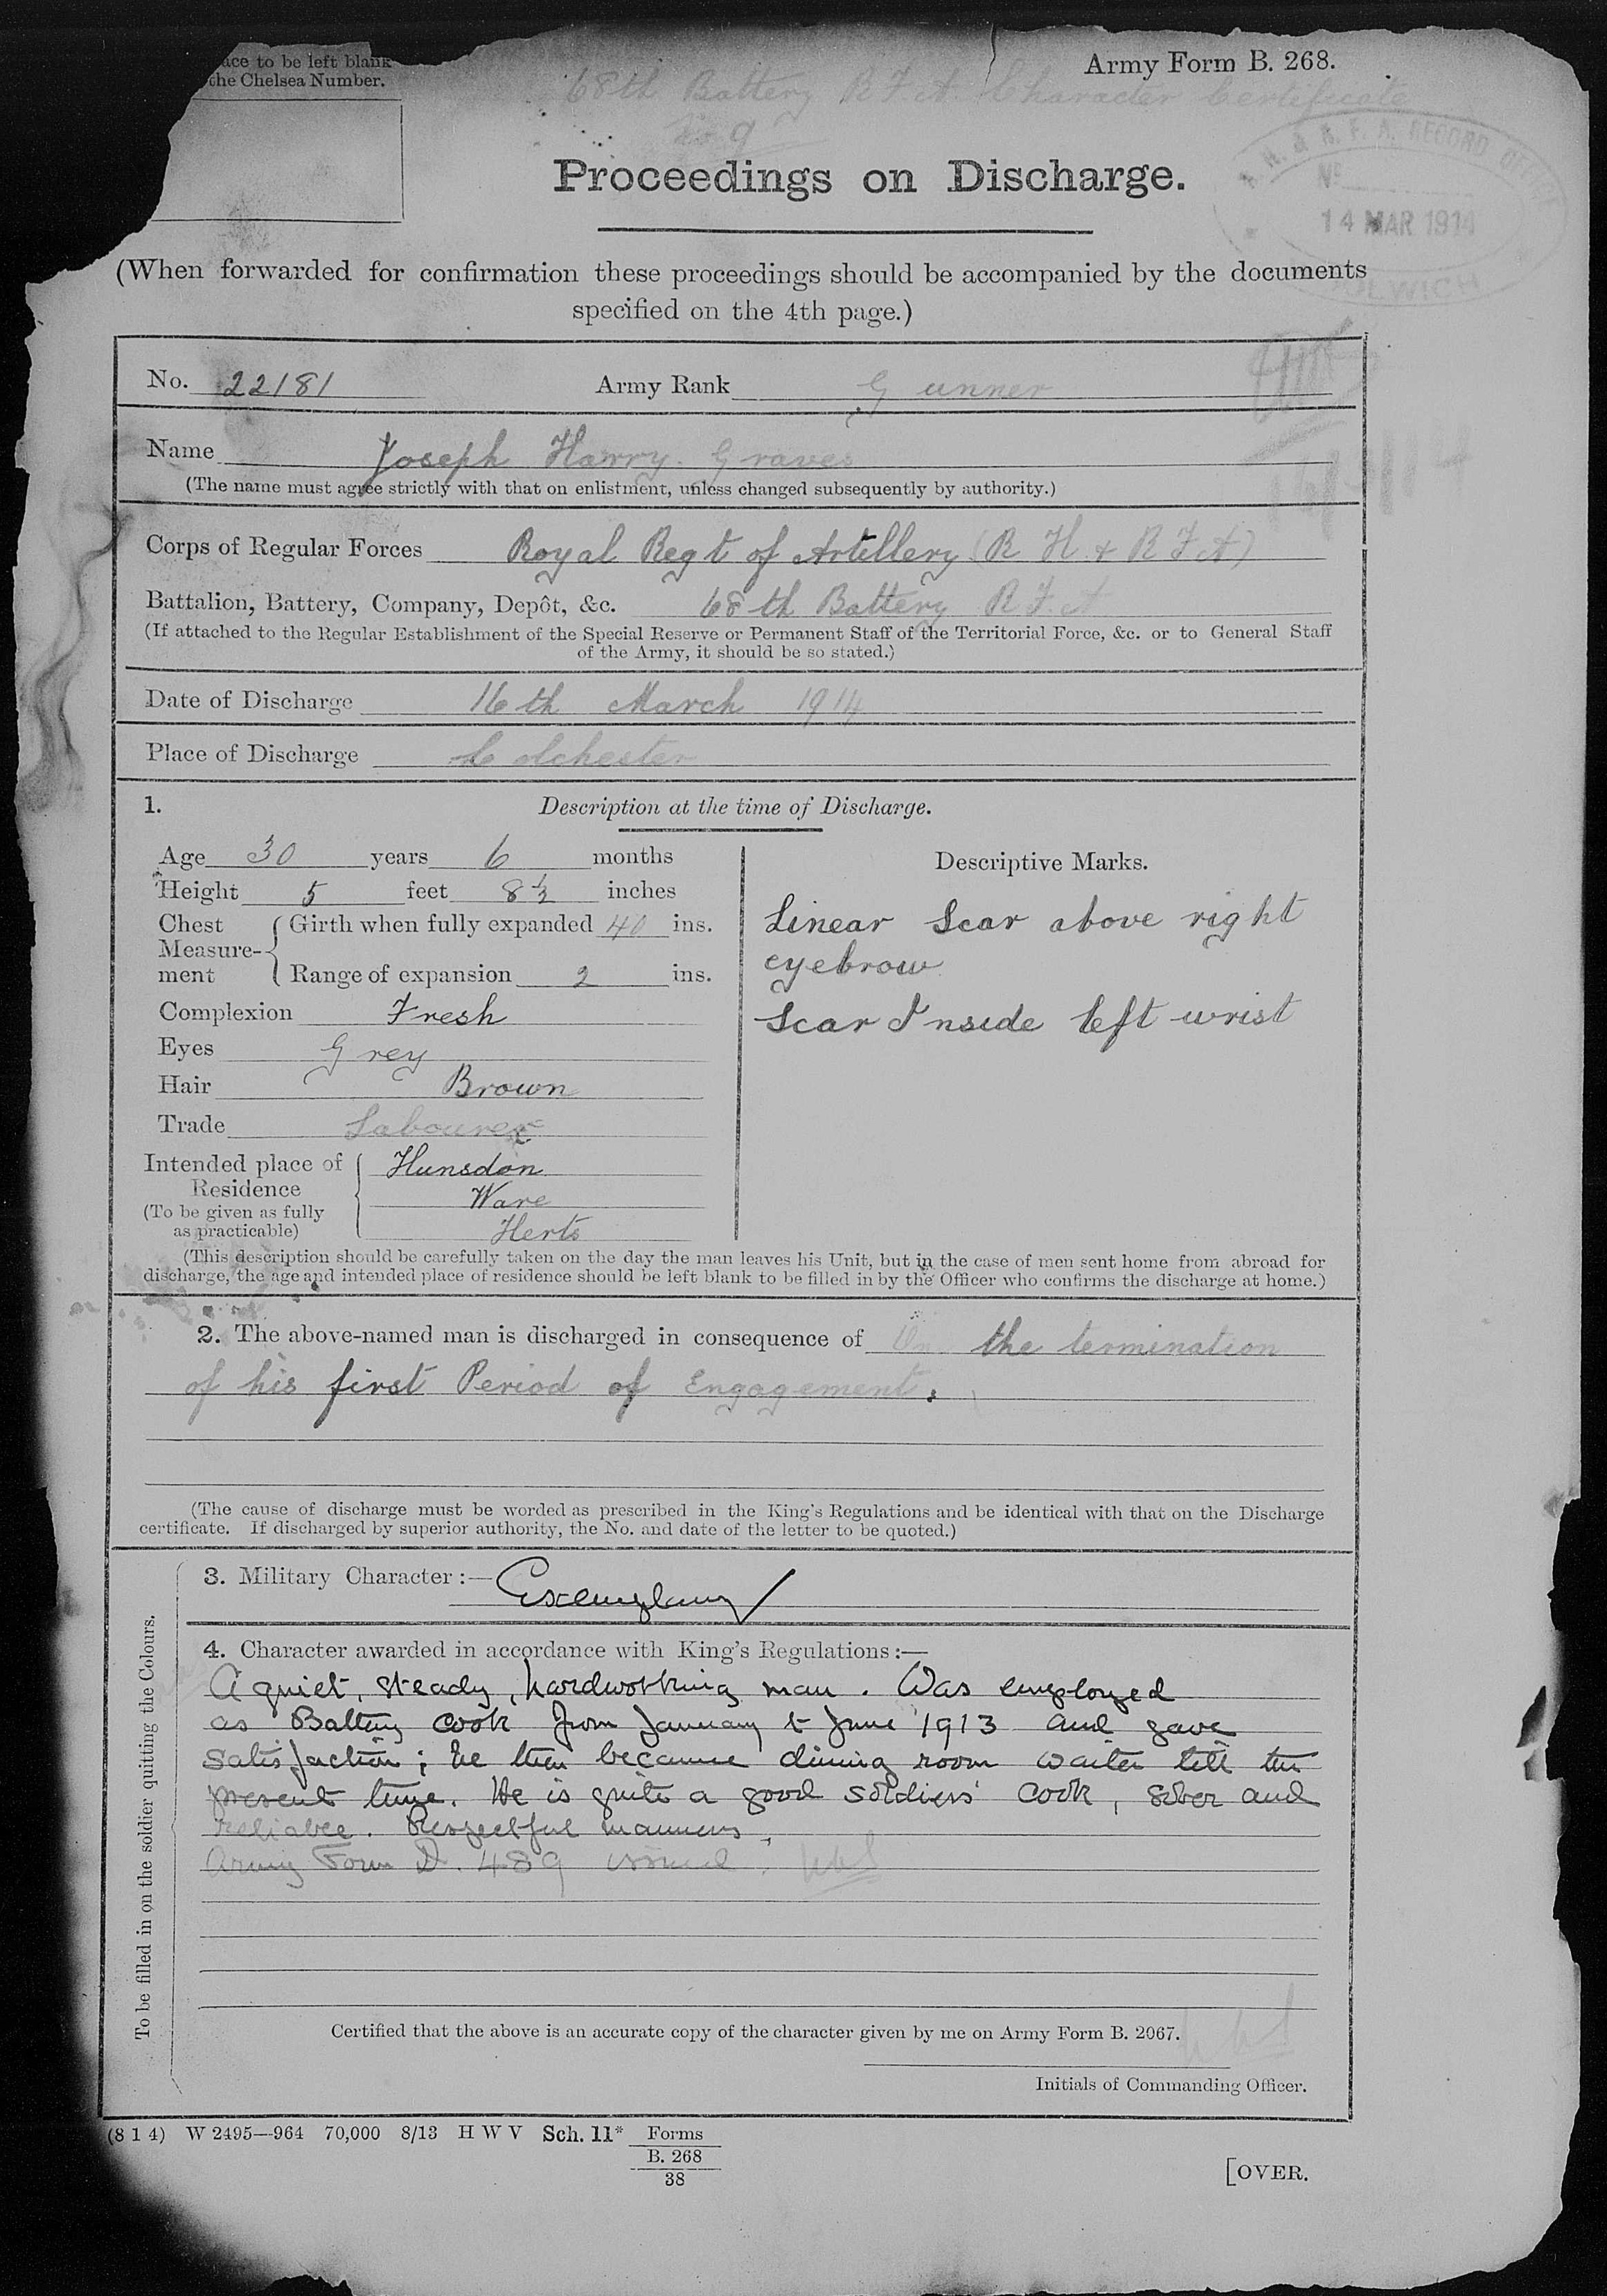 ace to be left blank
the Chelsea Number.
Army Form B. 268.
68th Battery R.F.A. Character Certificate
No 9
Proceedings on Discharge.
R. H. & R. F. A. RECORD OFFICE
No
14 MAR 1914
WOOLWICH
(When forwarded for confirmation these proceedings should be accompanied by the documents
specified on the 4th page.)
No. 22181 Army Rank Gunner
Name Joseph Harry Graves
(The name must agree strictly with that on enlistment, unless changed subsequently by authority.)
Corps of Regular Forces Royal Regt of Artillery (R H & R F A)
Battalion, Battery, Company, Depôt, &c. 68th Battery R.F.A
(If attached to the Regular Establishment of the Special Reserve or Permanent Staff of the Territorial Force, &c. or to General Staff
of the Army, it should be so stated.)
Date of Discharge 16th March 1914
Place of Discharge Colchester
1. Description at the time of Discharge.
Age 30 years 6 months
Height 5 feet 8½ inches
Chest Measure-ment
Girth when fully expanded 40 ins.
Range of expansion 2 ins.
Complexion Fresh
Eyes Grey
Hair Brown
Trade Labourer
Intended place of Residence
(To be given as fully as practicable)
Hunsdon
Ware
Herts
Descriptive Marks.
Linear Scar above right
eyebrow
Scar Inside left wrist
(This description should be carefully taken on the day the man leaves his Unit, but in the case of men sent home from abroad for
discharge, the age and intended place of residence should be left blank to be filled in by the Officer who confirms the discharge at home.)
2. The above-named man is discharged in consequence of On the termination
of his first Period of Engagement.
(The cause of discharge must be worded as prescribed in the King's Regulations and be identical with that on the Discharge
certificate. If discharged by superior authority, the No. and date of the letter to be quoted.)
To be filled in on the soldier quitting the Colours.
3. Military Character:— Exemplary
4. Character awarded in accordance with King's Regulations:—
A quiet, steady, hardworking man. Was employed
as Battery cook from January to June 1913 and gave
satisfaction; he then became dining room waiter till the
present time. He is quite a good soldiers' cook, sober and
reliable. Respectful manners.
Army Form D. 489 issued.
Certified that the above is an accurate copy of the character given by me on Army Form B. 2067.
Initials of Commanding Officer.
(8 1 4) W 2495—964 70,000 8/13 H W V Sch. 11* Forms
B. 268
38
[OVER.